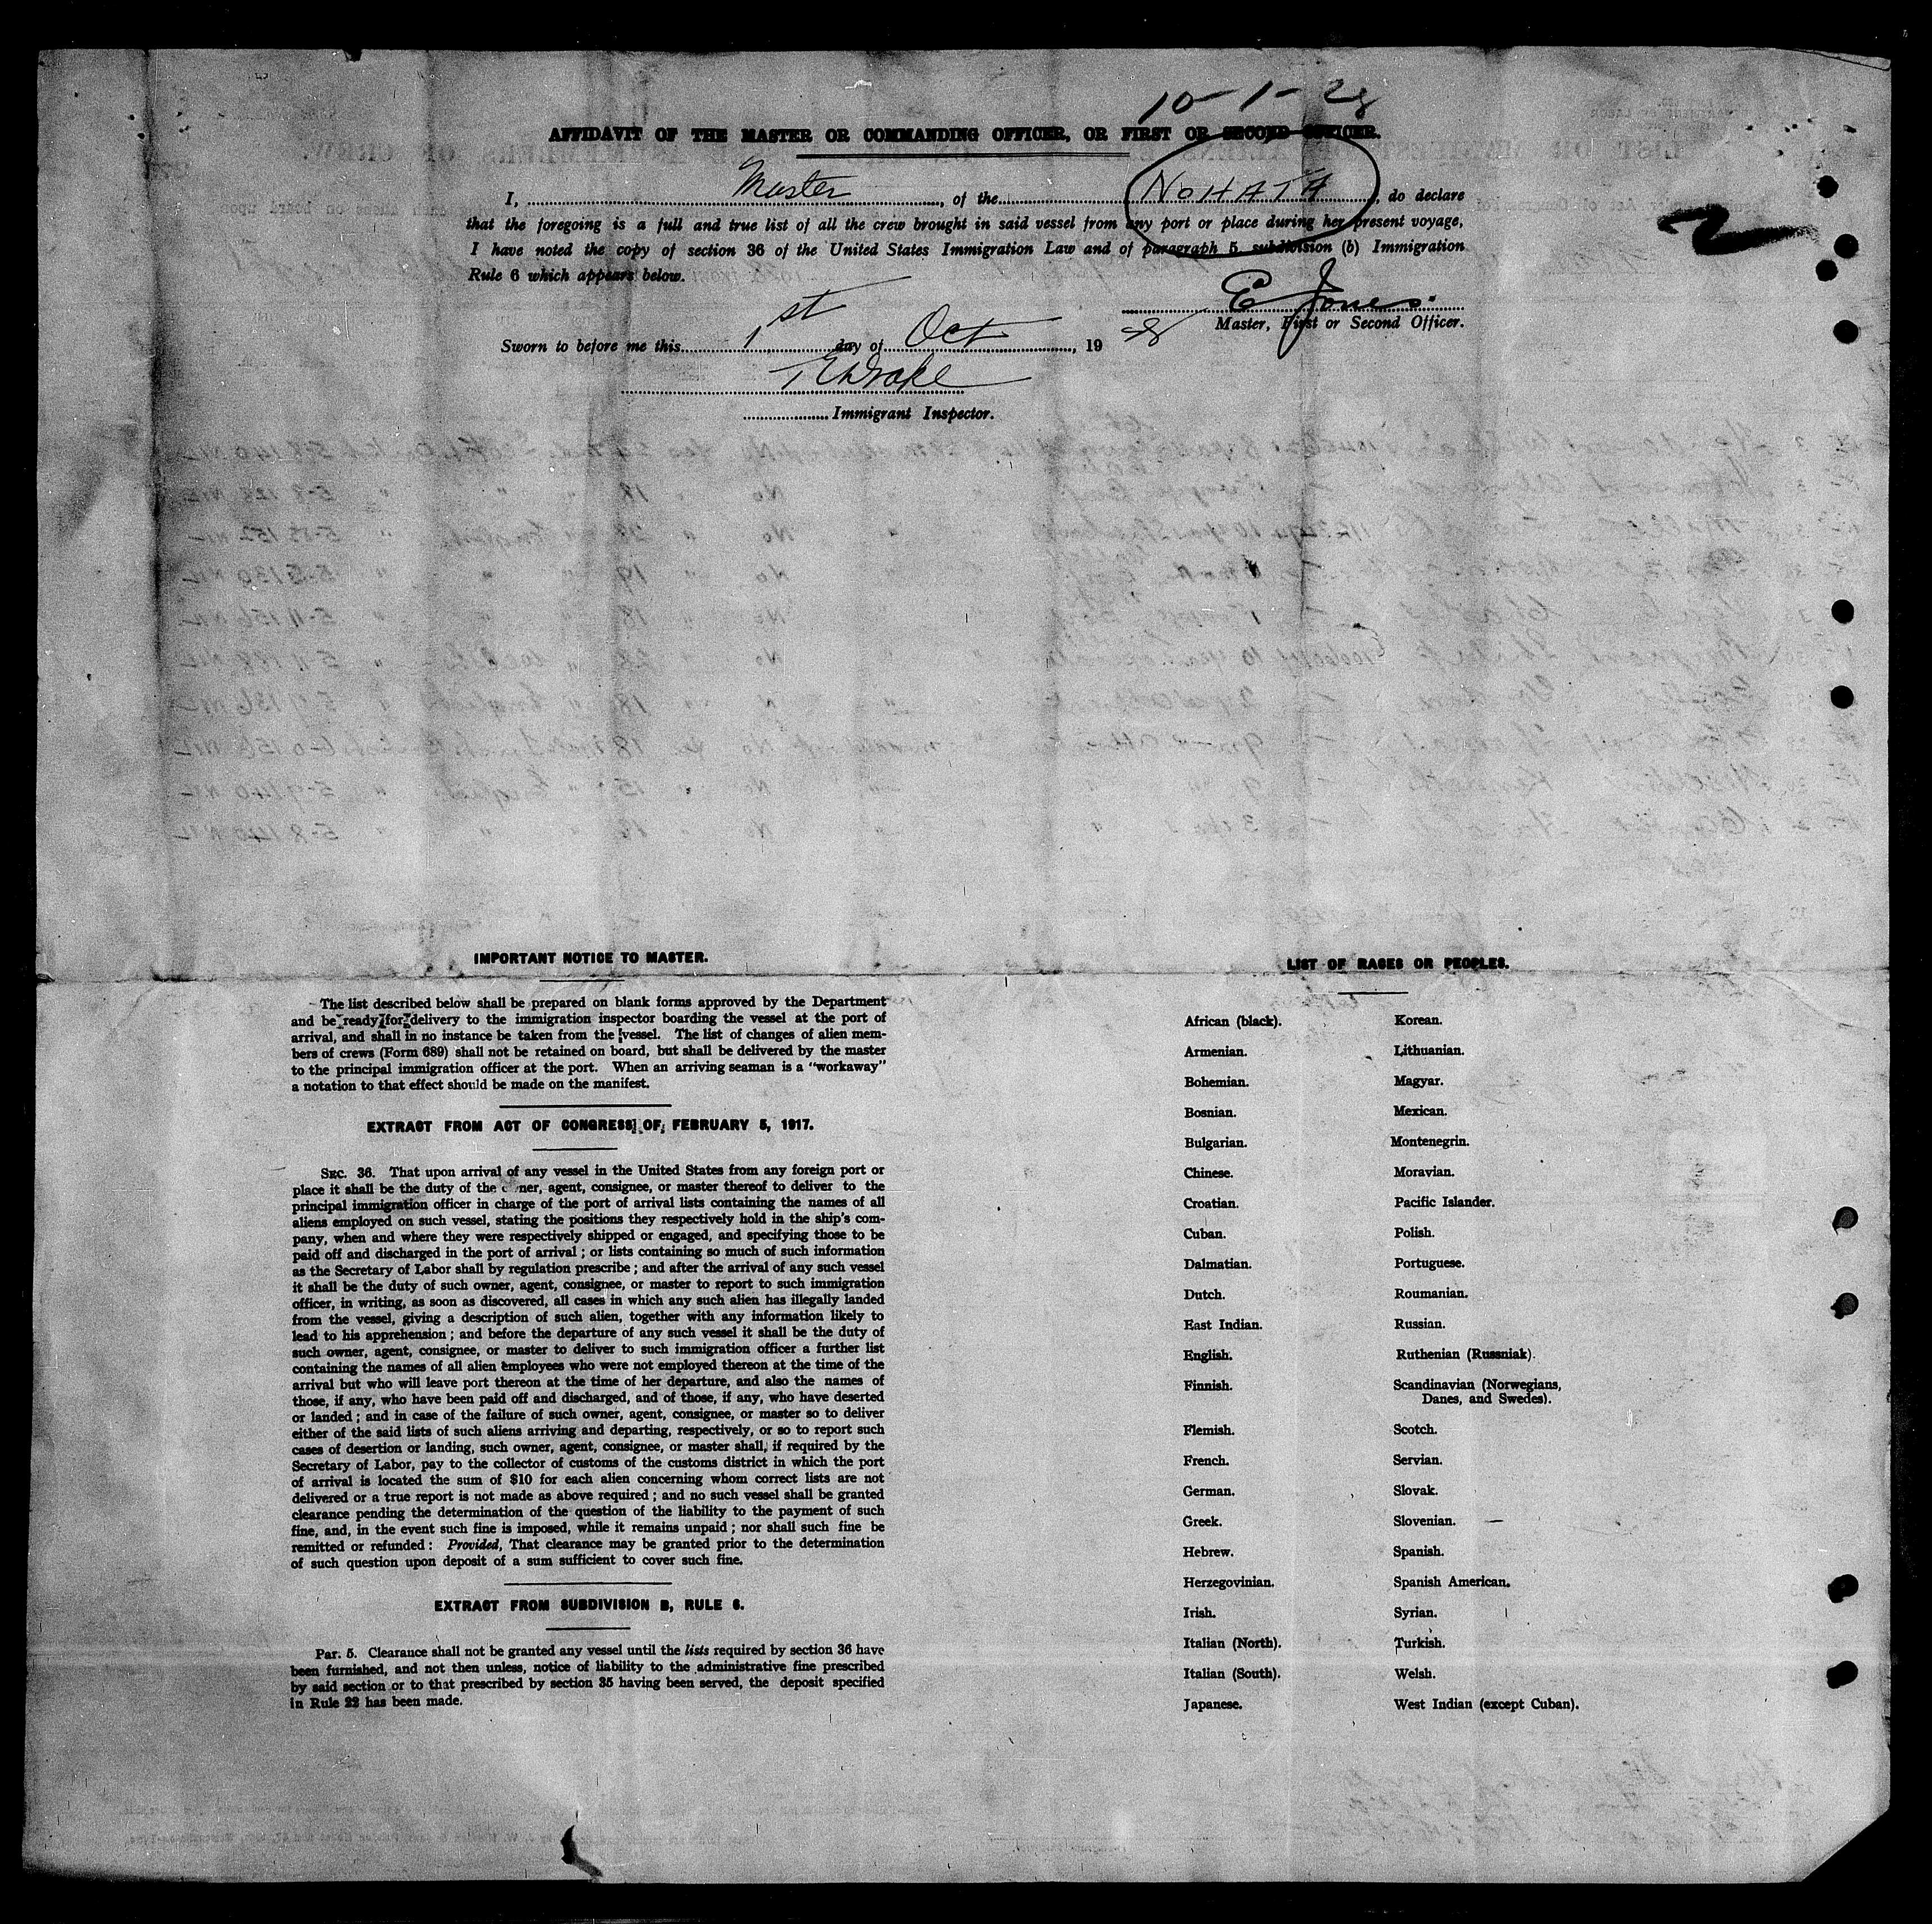 10-1-28
AFFIDAVIT OF THE MASTER OR COMMANDING OFFICER, OR FIRST OR SECOND OFFICER.
I, Master, of the NOHATA, do declare
that the foregoing is a full and true list of all the crew brought in said vessel from any port or place during her present voyage,
I have noted the copy of section 36 of the United States Immigration Law and of paragraph 5 subdivision (b) Immigration
Rule 6 which appears below.
2
E Jones.
Master, First or Second Officer.
Sworn to before me this 1st day of Oct, 19 28
Immigrant Inspector.
IMPORTANT NOTICE TO MASTER.
The list described below shall be prepared on blank forms approved by the Department
and be ready for delivery to the immigration inspector boarding the vessel at the port of
arrival, and shall in no instance be taken from the vessel. The list of changes of alien mem-
bers of crews (Form 689) shall not be retained on board, but shall be delivered by the master
to the principal immigration officer at the port. When an arriving seaman is a "workaway"
a notation to that effect should be made on the manifest.
EXTRACT FROM ACT OF CONGRESS OF FEBRUARY 5, 1917.
SEC. 36. That upon arrival of any vessel in the United States from any foreign port or
place it shall be the duty of the owner, agent, consignee, or master thereof to deliver to the
principal immigration officer in charge of the port of arrival lists containing the names of all
aliens employed on such vessel, stating the positions they respectively hold in the ship's com-
pany, when and where they were respectively shipped or engaged, and specifying those to be
paid off and discharged in the port of arrival; or lists containing so much of such information
as the Secretary of Labor shall by regulation prescribe; and after the arrival of any such vessel
it shall be the duty of such owner, agent, consignee, or master to report to such immigration
officer, in writing, as soon as discovered, all cases in which any such alien has illegally landed
from the vessel, giving a description of such alien, together with any information likely to
lead to his apprehension; and before the departure of any such vessel it shall be the duty of
such owner, agent, consignee, or master to deliver to such immigration officer a further list
containing the names of all alien employees who were not employed thereon at the time of the
arrival but who will leave port thereon at the time of her departure, and also the names of
those, if any, who have been paid off and discharged, and of those, if any, who have deserted
or landed; and in case of the failure of such owner, agent, consignee, or master so to deliver
either of the said lists of such aliens arriving and departing, respectively, or so to report such
cases of desertion or landing, such owner, agent, consignee, or master shall, if required by the
Secretary of Labor, pay to the collector of customs of the customs district in which the port
of arrival is located the sum of $10 for each alien concerning whom correct lists are not
delivered or a true report is not made as above required; and no such vessel shall be granted
clearance pending the determination of the question of the liability to the payment of such
fine, and, in the event such fine is imposed, while it remains unpaid; nor shall such fine be
remitted or refunded: Provided, That clearance may be granted prior to the determination
of such question upon deposit of a sum sufficient to cover such fine.
EXTRACT FROM SUBDIVISION B, RULE 6.
Par. 5. Clearance shall not be granted any vessel until the lists required by section 36 have
been furnished, and not then unless, notice of liability to the administrative fine prescribed
by said section or to that prescribed by section 35 having been served, the deposit specified
in Rule 22 has been made.
LIST OF RACES OR PEOPLES.
African (black).
Armenian.
Bohemian.
Bosnian.
Bulgarian.
Chinese.
Croatian.
Cuban.
Dalmatian.
Dutch.
East Indian.
English.
Finnish.
Flemish.
French.
German.
Greek.
Hebrew.
Herzegovinian.
Irish.
Italian (North).
Italian (South).
Japanese.
Korean.
Lithuanian.
Magyar.
Mexican.
Montenegrin.
Moravian.
Pacific Islander.
Polish.
Portuguese.
Roumanian.
Russian.
Ruthenian (Russniak).
Scandinavian (Norwegians,
Danes, and Swedes).
Scotch.
Servian.
Slovak.
Slovenian.
Spanish.
Spanish American.
Syrian.
Turkish.
Welsh.
West Indian (except Cuban).